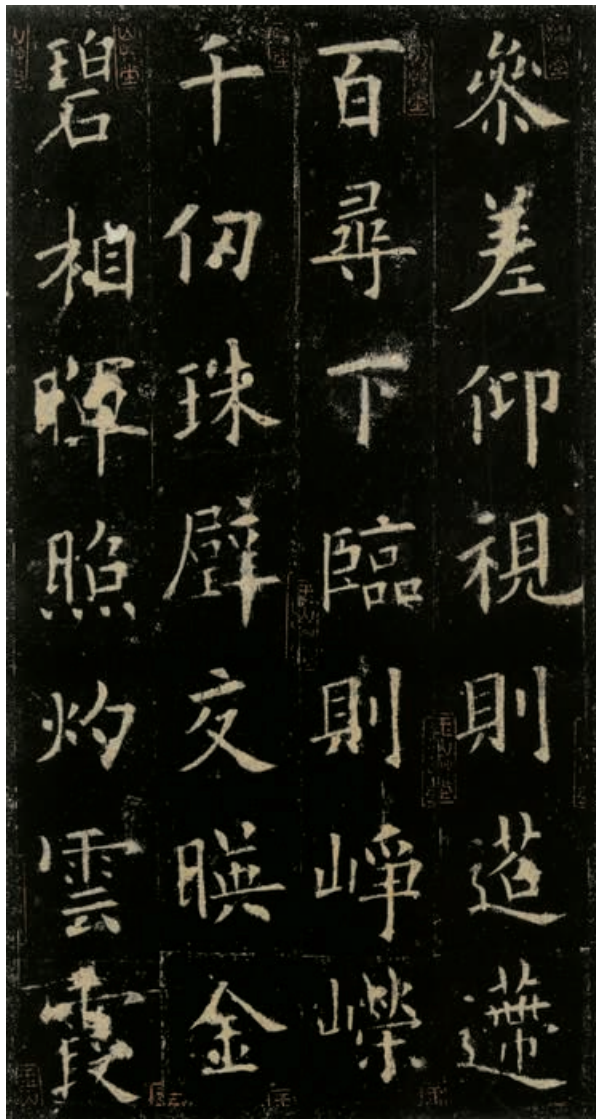 參差仰視則迢𨗿
百尋下臨則崢嶸
千仞珠壁交暎金
碧相暉照灼雲霞